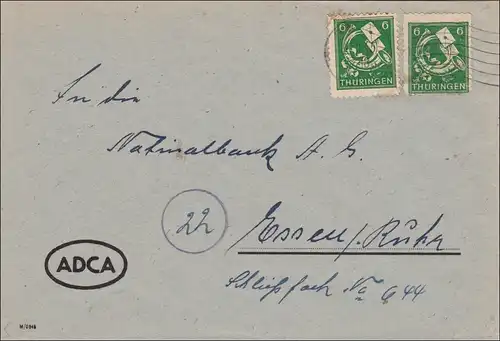 6 6
THÜRINGEN
6 6
THÜRINGEN
An die
Nationalbank A. G.
22
Essen/Ruhr
Schließfach No 644
ADCA